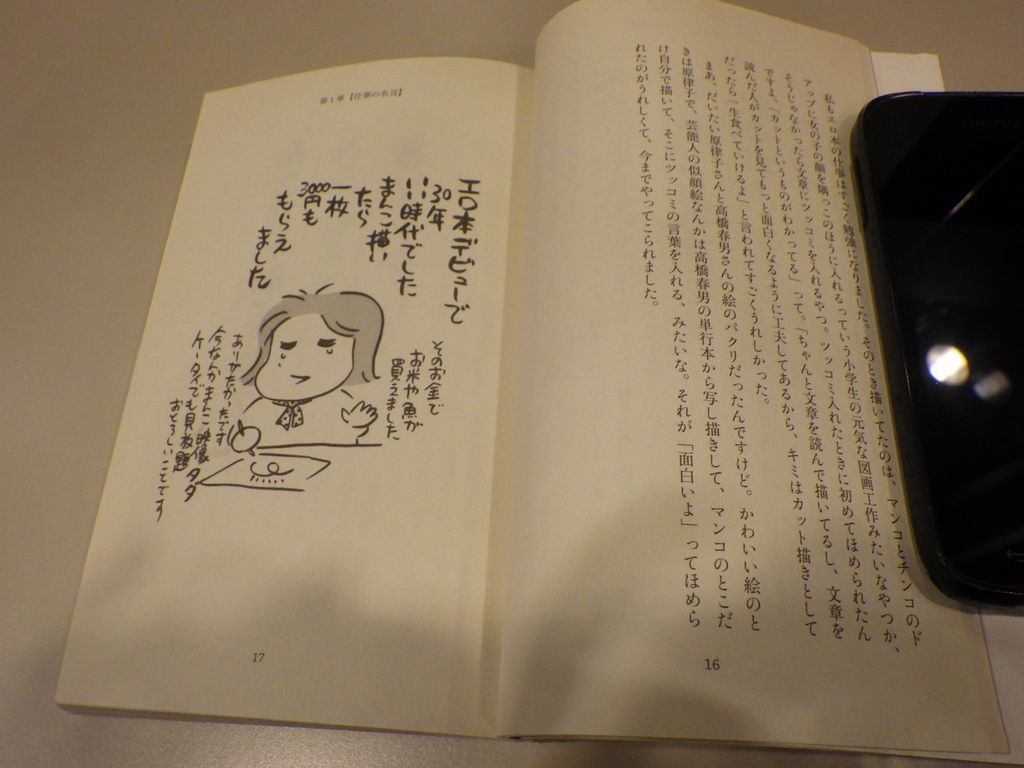 私もエロ本の仕事はすごく勉強になりました。そのとき描いてたのは、マンコとチンコのド
アップに女の子の顔を隅っこのほうに入れるっていう小学生の元気な図画工作みたいなやつか、
そうじゃなかったら文章にツッコミを入れるやつ。ツッコミ入れたときに初めてほめられたん
ですよ。「カットというものがわかってる」って。「ちゃんと文章を読んで描いてるし、文章を
読んだ人がカットを見てもっと面白くなるように工夫してあるから、キミはカット描きとして
だったら一生食べていけるよ」と言われてすごくうれしかった。
まあ、だいたい原律子さんと高橋春男さんの絵のパクリだったんですけど。かわいい絵のと
きは原律子で、芸能人の似顔絵なんかは高橋春男の単行本から写し描きして、マンコのとこだ
け自分で描いて、そこにツッコミの言葉を入れる、みたいな。それが「面白いよ」ってほめら
れたのがうれしくて、今までやってこられました。
16
第1章【仕事の名言】
エロ本デビューで
30年
いい時代でした
まんこ描い
たら
一枚
3000円も
もらえ
ました
そのお金で
お米や魚が
買えました
ありがたかったです
今なんかまんこ映像
ケータイでも見放題 タダ
おそろしいことです
17